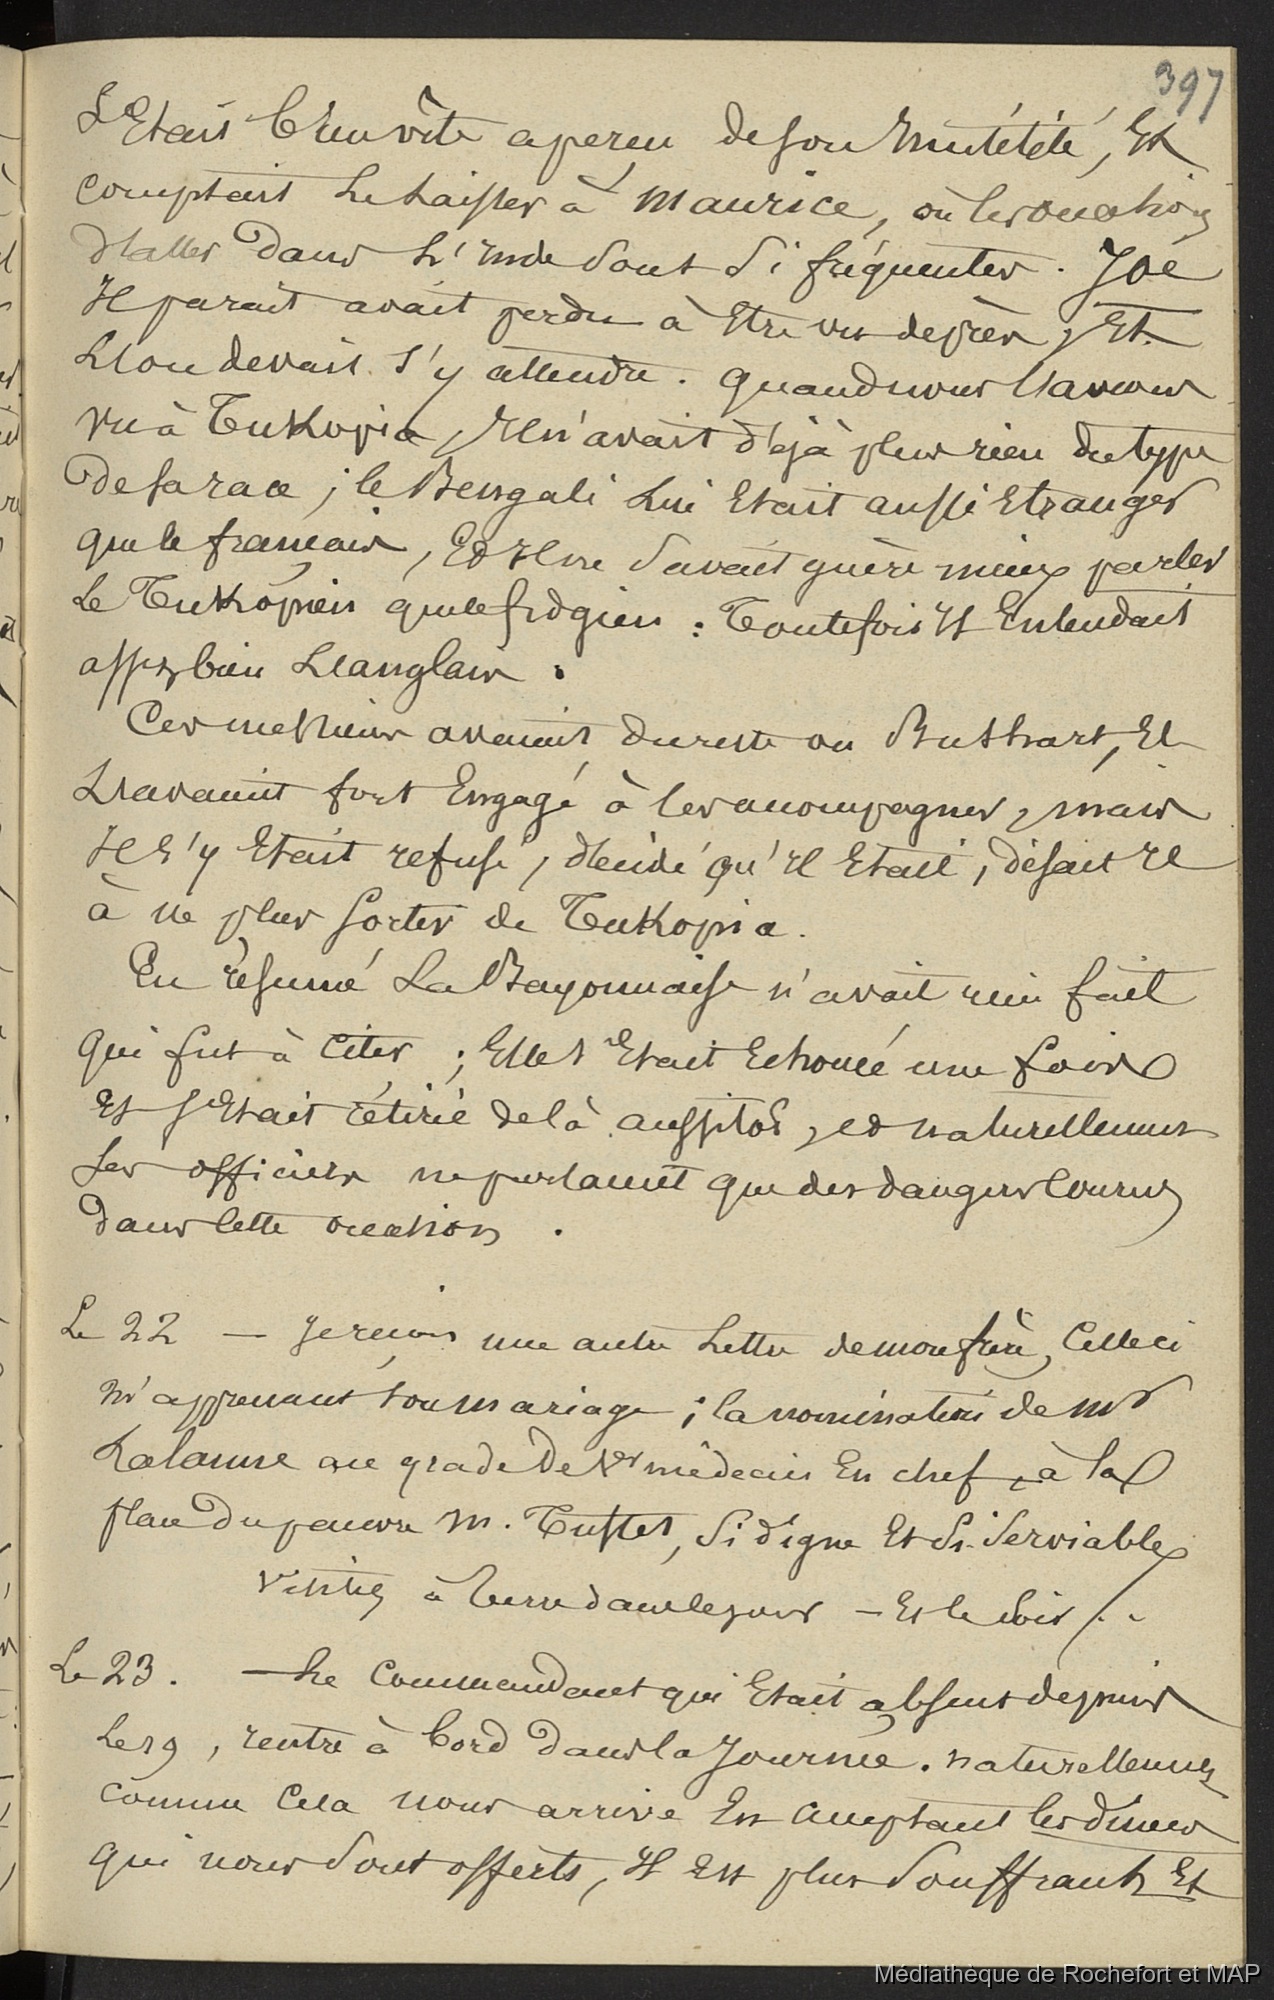 397
S'Etait bien vite aperçu de son Inutélité, Et
comptait le laisser à Maurice, où les ocations
d'aller dans l'Inde sont si fréquentes. Joé
Il parait avait perdu à Etre vu de près, Et
L'on devait s'y attendre. quand nous l'avons
vu à Tukopia, Il n'avait déjà plus rien du type
de sa race ; le Bengali lui Etait aussi Etranger
que le français, Ed Il ne savait guère mieux parler
Le Tukopien que le fidgien : Toutefois Il Entendait
assez bien L'anglais.
Ces messieurs avaient du reste vu Buthart, Et
L'avaient fort Engagé à les accompagner, mais
Il s'y Etait refusé, décidé qu'Il Etait, disait Il
à ne plus sortir de Tukopia.
En résumé La Bayonnaise n'avait rien fait
qui fut à Citer ; Elle s'Etait Echouée une fois
Et s'Etait rétirée de là aussitôt, ed naturellement
Les officiers ne parlaient que des dangers Courus
dans Cette ocation.
Le 22 — Je reçois une autre Lettre de mon frère, Celle ci
m'apprenant son mariage ; la nomination de Mr
Lalanne au grade de 1er médecin En chef, à la
place du pauvre M. Tuffet, si digne Et si serviable
Visites à terre dans le jour — Et le soir /. .
Le 23. — Le Commandant qui Etait absent depuis
Le 19, rentre à bord dans la Journée. naturellement
comme Cela nous arrive En acceptant les diners
qui nous sont offerts, Il Est plus souffrant Et
Médiathèque de Rochefort et MAP